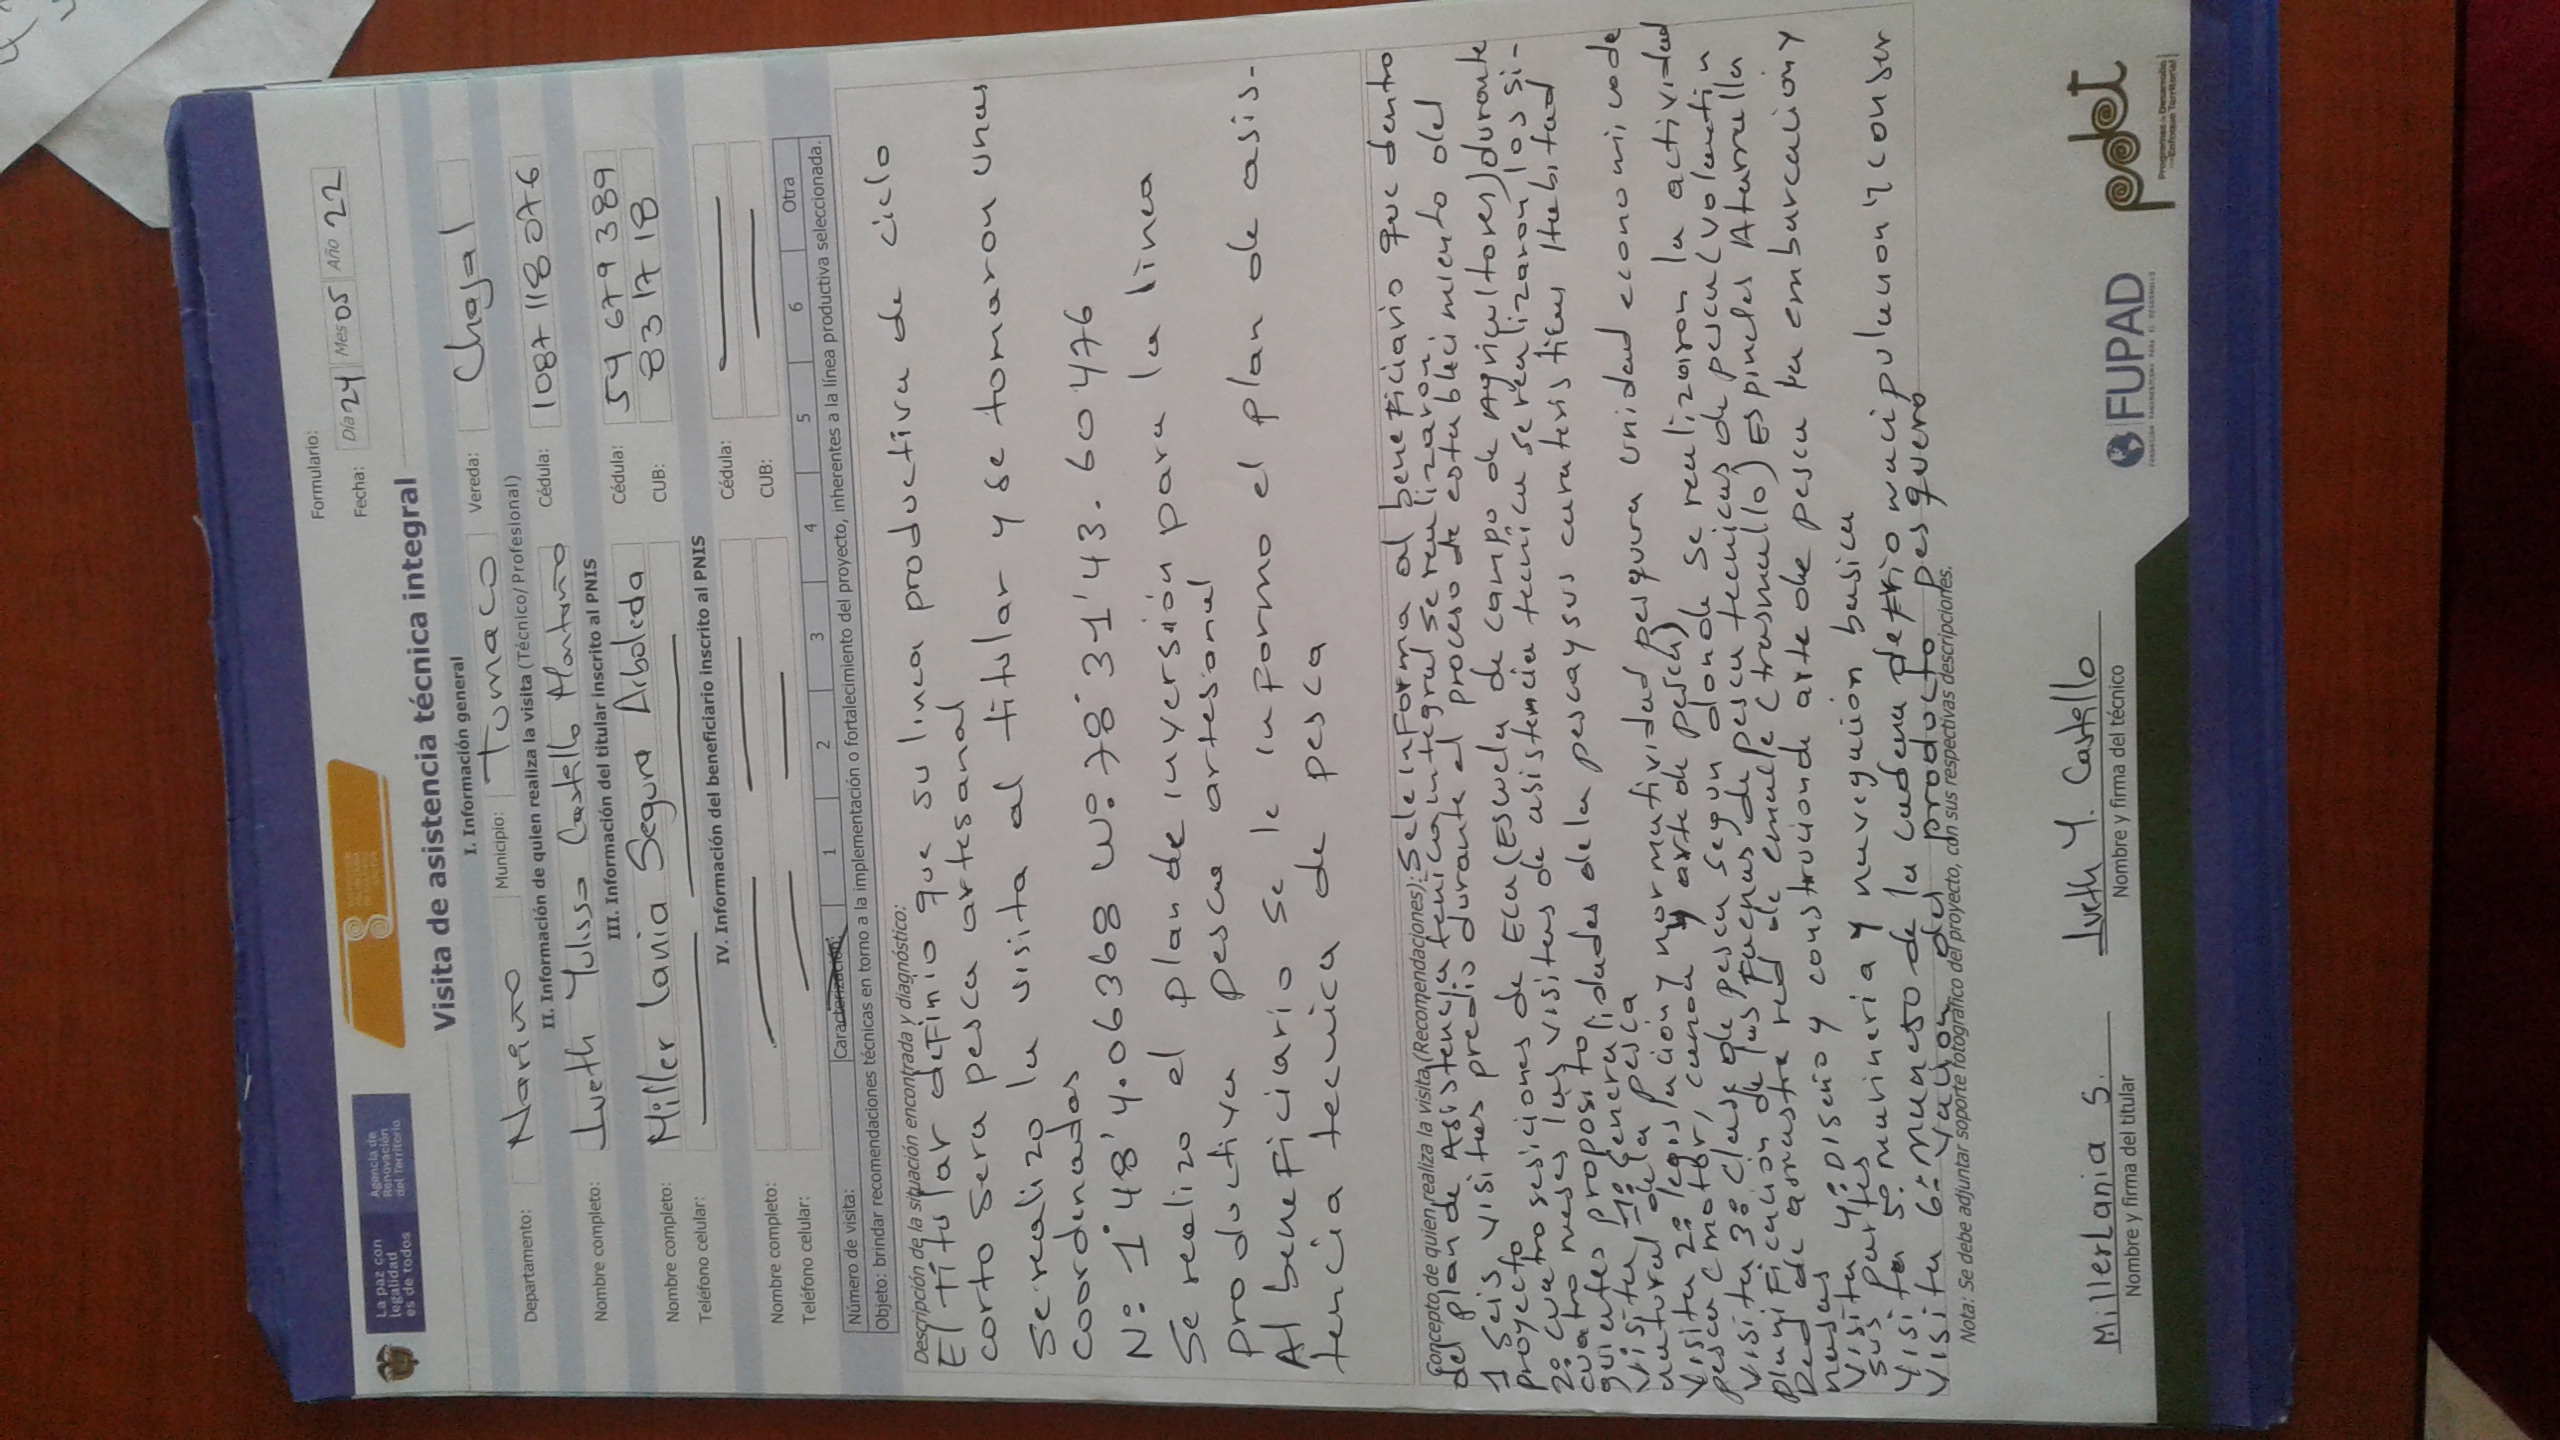 La paz con
legalidad
es de todos
Agencia de
Renovación
del Territorio
Formulario:
Fecha: Día 24 Mes 05 Año 22
Visita de asistencia técnica integral
I. Información general
Departamento: Nariño Municipio: Tumaco Vereda: Chajal
II. Información de quien realiza la visita (Técnico/Profesional)
Nombre completo: Iveth Yulissa Castillo Montaño Cédula: 1087 118 076
III. Información del titular inscrito al PNIS
Nombre completo: Miller Lania Segura Arboleda Cédula: 59 679 389
Teléfono celular: CUB: 8317 18
IV. Información del beneficiario inscrito al PNIS
Nombre completo: Cédula:
Teléfono celular: CUB:
Número de visita: Caracterización: 1 2 3 4 5 6 Otra
Objeto: brindar recomendaciones técnicas en torno a la implementación o fortalecimiento del proyecto, inherentes a la línea productiva seleccionada.
Descripción de la situación encontrada y diagnóstico:
El titular definio que su linea productiva de ciclo
corto sera pesca artesanal
Se realizo la visita al titular y se tomaron unas
coordenadas
N: 1°48'4.06368 W: 78°31'43.60476
Se realizo el plan de inversión para la linea
productiva pesca artesanal
Al beneficiario se le informo el plan de asis-
tencia tecnica de pesca
Concepto de quien realiza la visita (Recomendaciones): Se le informa al beneficiario que dentro
del plan de Asistencia tenica integral se realizaron
1 seis visitas predio durante el proceso de establecimiento del
proyecto
2º cuatro sesiciones de Eca (Escuela de campo de Agricultores) durante
cuatro meses las visitas de asistencia tecnica se realizaron los si-
guientes proposito
visita 1º Generalidades de la pesca y sus carateristicas Habitad
natural de la pesca
visita 2º legislación y normatividad pesquera unidad economica de
pesca (motor, canoa y arte de pesca)
visita 3º clase de pesca segun donde se realizaron la actividad
planificación de las faenas de pesca tecnicas de pesca (volantin
Red de arrastre red de enmalle (trasmallo) Espineles Atarralla
nasas
visita 4º Diseño y construcionde arte de pesca la embarcalion y
sus partes
visita 5º marineria y navegación basica
visita 6º manejo de la cadena de frio manipulacion y conser
vación del producto pesquero
Nota: Se debe adjuntar soporte fotográfico del proyecto, con sus respectivas descripciones.
Miller Lania S.
Nombre y firma del titular
Iveth Y. Castillo
Nombre y firma del técnico
FUPAD
pdet
Programas de Desarrollo
con Enfoque Territorial